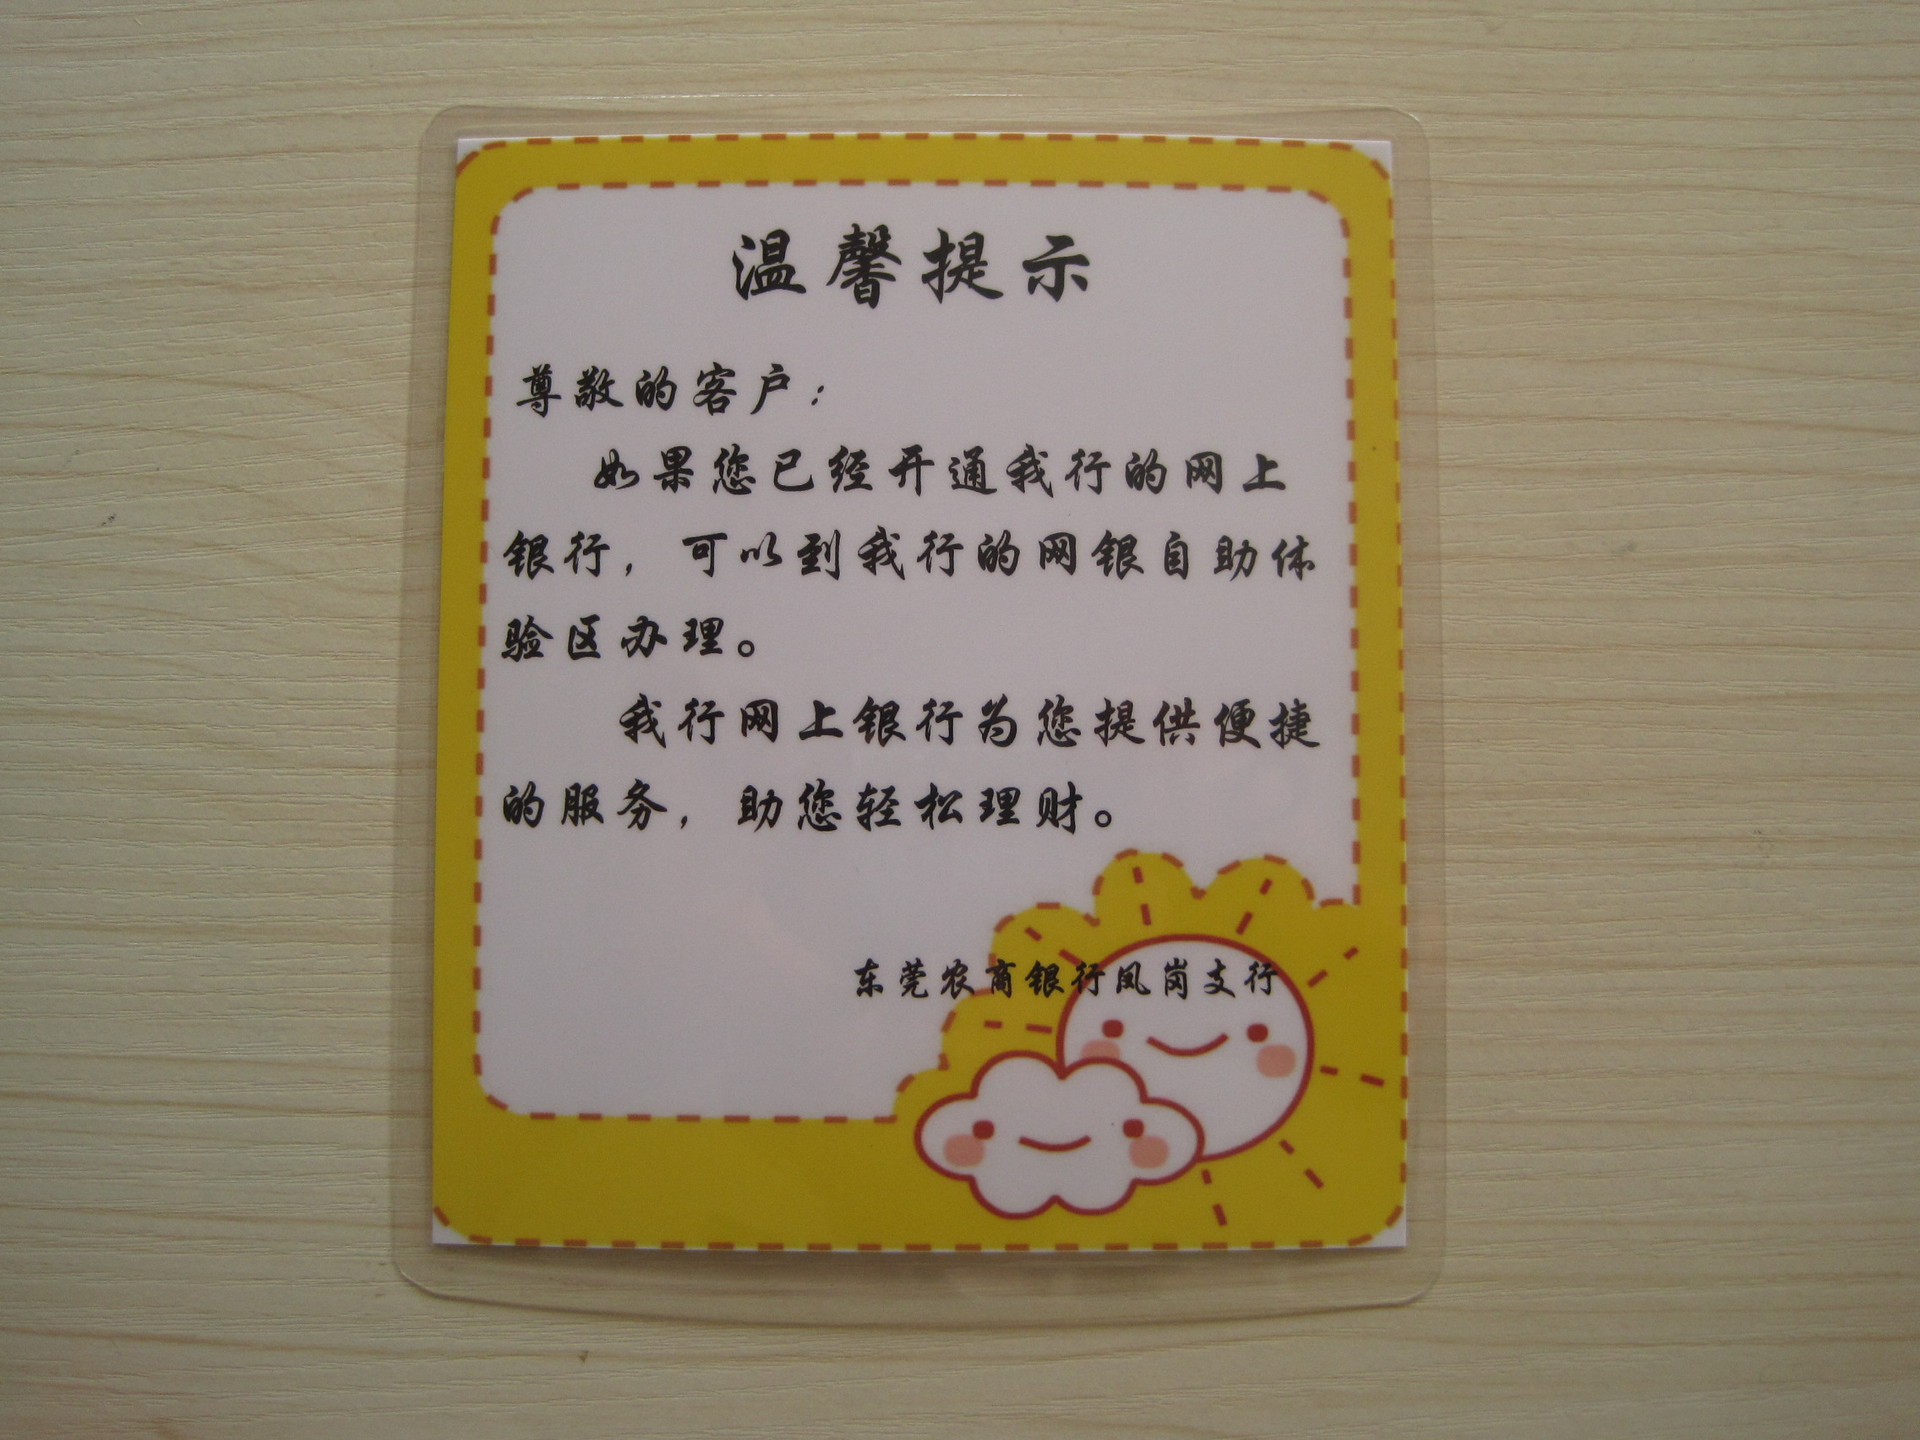 温馨提示
尊敬的客户：
如果您已经开通我行的网上
银行，可以到我行的网银自助体
验区办理。
我行网上银行为您提供便捷
的服务，助您轻松理财。
东莞农商银行凤岗支行